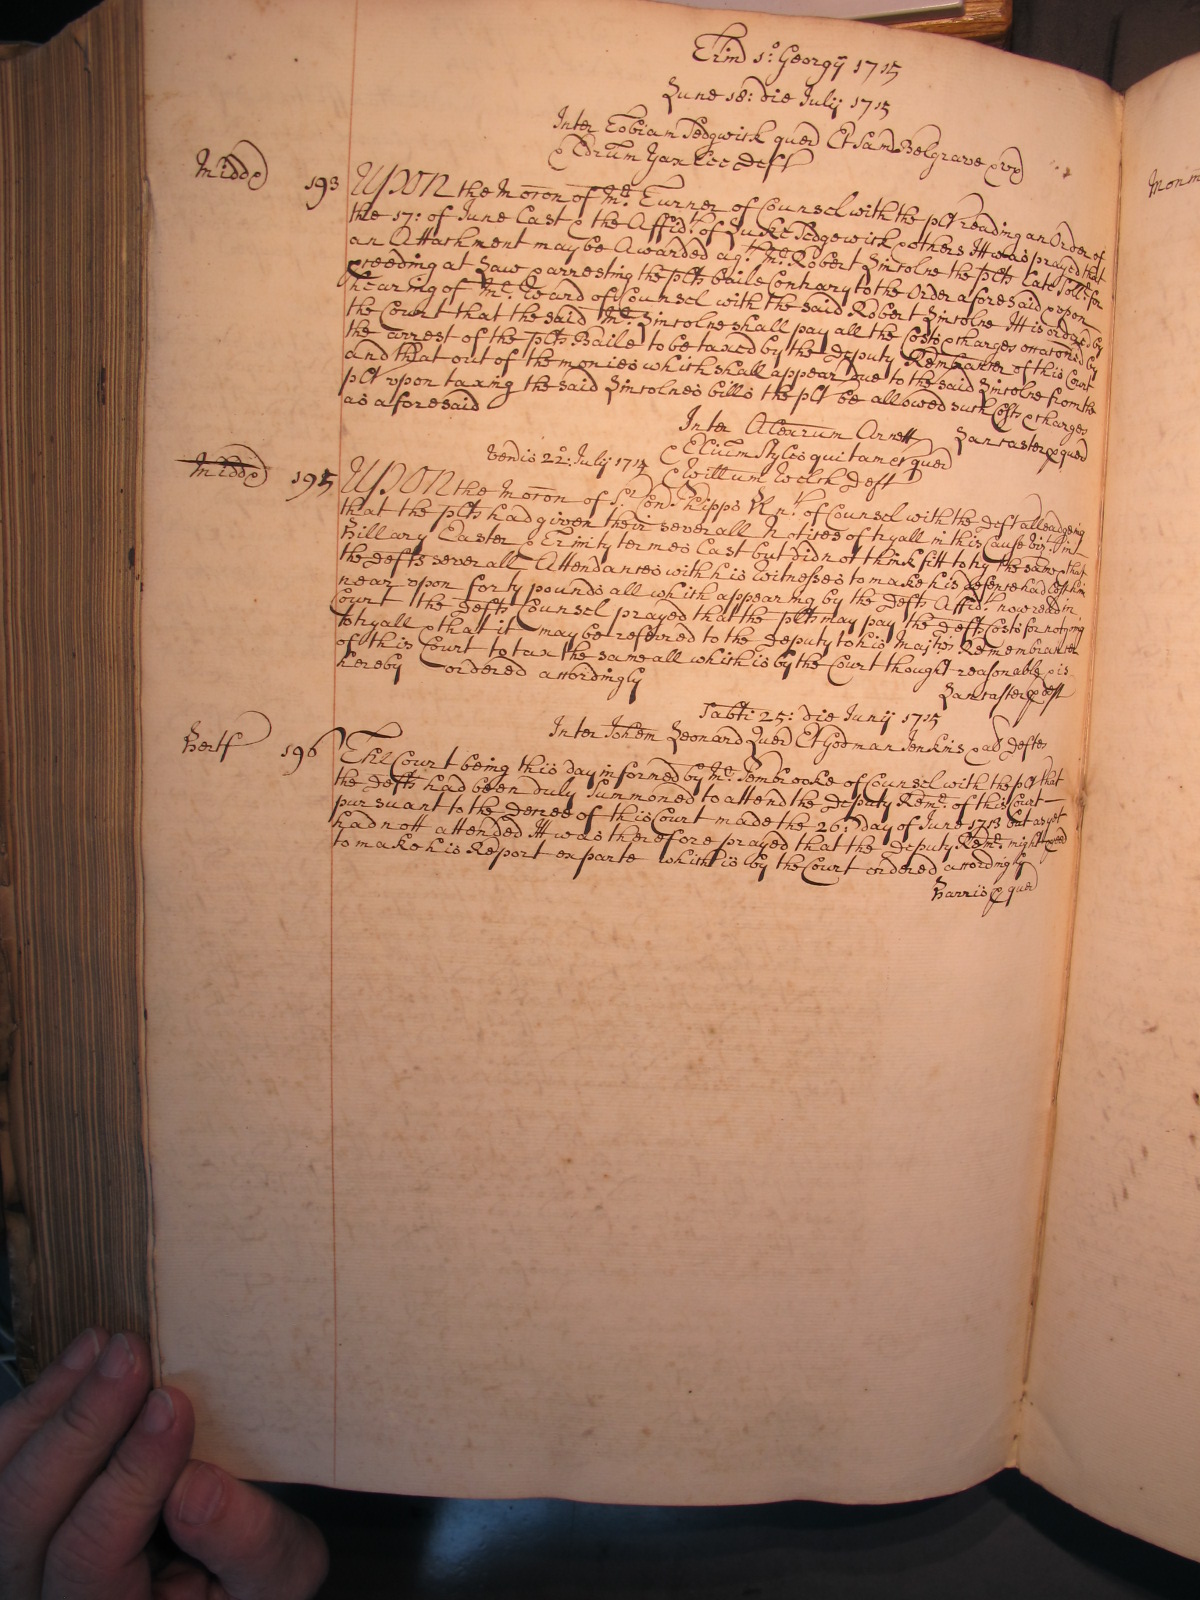 Trin 1o: Georgij 1715
Lune 18: die Julij 1715
Inter Tobiam Sedgwick quer Et Sam Belgrave et ux
& Edrum Yaxlee Deft
Midd 193 UPON the Mocon of Mr. Turner of Counsel with the plt reading an Order of
the 17: of June Last & the Affidt. of Luke Sedgewick & others It was prayed that
an Attachment may be Awarded agt. Mr. Robert Lincolne the plts Late Sollr. for
proceeding at Law & arresting the plts baile Contrary to the Order aforesaid & upon
hearing of Mr. Ward of Counsel with the said Robert Lincolne It is ordered by
the Court that the said Mr. Lincolne shall pay all the Costs & charges occasioned by
the arrest of the plts Baile to be taxed by the Deputy Rembrancer of this Court
and that out of the monies which shall appear due to the said Lincolne from the
plt upon taxing the said Lincolnes bills the plt be allowed such Costs & charges
as aforesaid
Lancaster p quer
Inter Alexrum Arnett
& Elium Styles qui tam et quer
Midd Venris 22o: Julij 1715 & Willum Welch Deft
195 UPON the Mocon of Sr. Con: Phipps Knt. of Counsel with the Deft alleadgeing
that the plts had given their severall Notices of tryall in this Cause vizt. Int
Hillary Easter & Trinity termes Last but did not think fitt to try the same & that
the Defts severall Attendances with his witnesses to make his defense had cost him
near upon forty pounds all which appearing by the Defts Affidt. now read in
Court the Defts Counsel prayed that the plts may pay the Defts Costs for not going
to tryall & that it may be referred to the Deputy to his Majties Remembrancer
of this Court to tax the same all which is by the Court thought reasonable & is
hereby ordered accordingly
Lancaster p Deft
Sabti 25: die Junij 1715
Inter Johem Leonard Quer Et Godman Jenkins & al Deftes
Hertf 196 THE Court being this day informed by Mr. Pembrooke of Counsel with the plt that
the Defts had been duly Summoned to attend the Deputy Remr. of this Court
pursuant to the Decree of this Court made the 26: day of June 1713 but as yet
had nott attended It was therefore prayed that the Deputy Remr. might proceed
to make his Report exparte which is by the Court ordered accordingly
Harris p quer
Monm